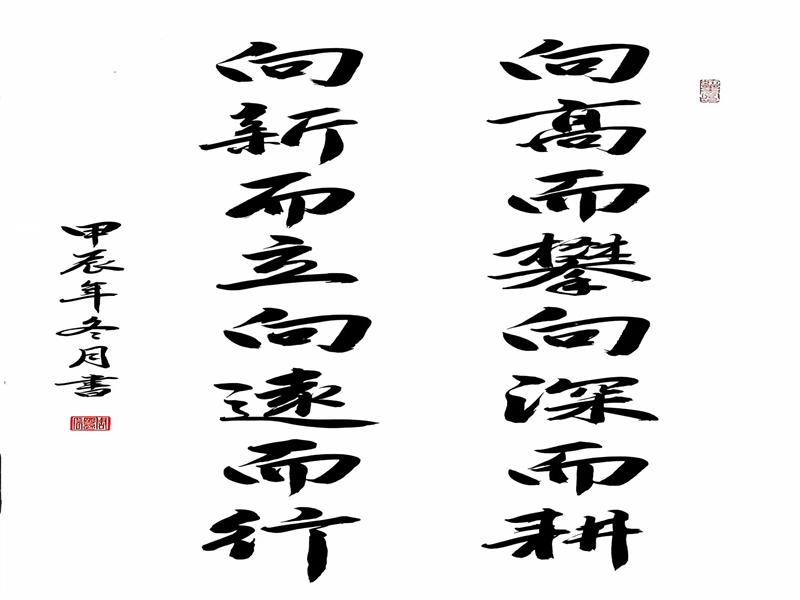 向高而攀向深而耕
向新而立向遠而行
甲辰年冬月書